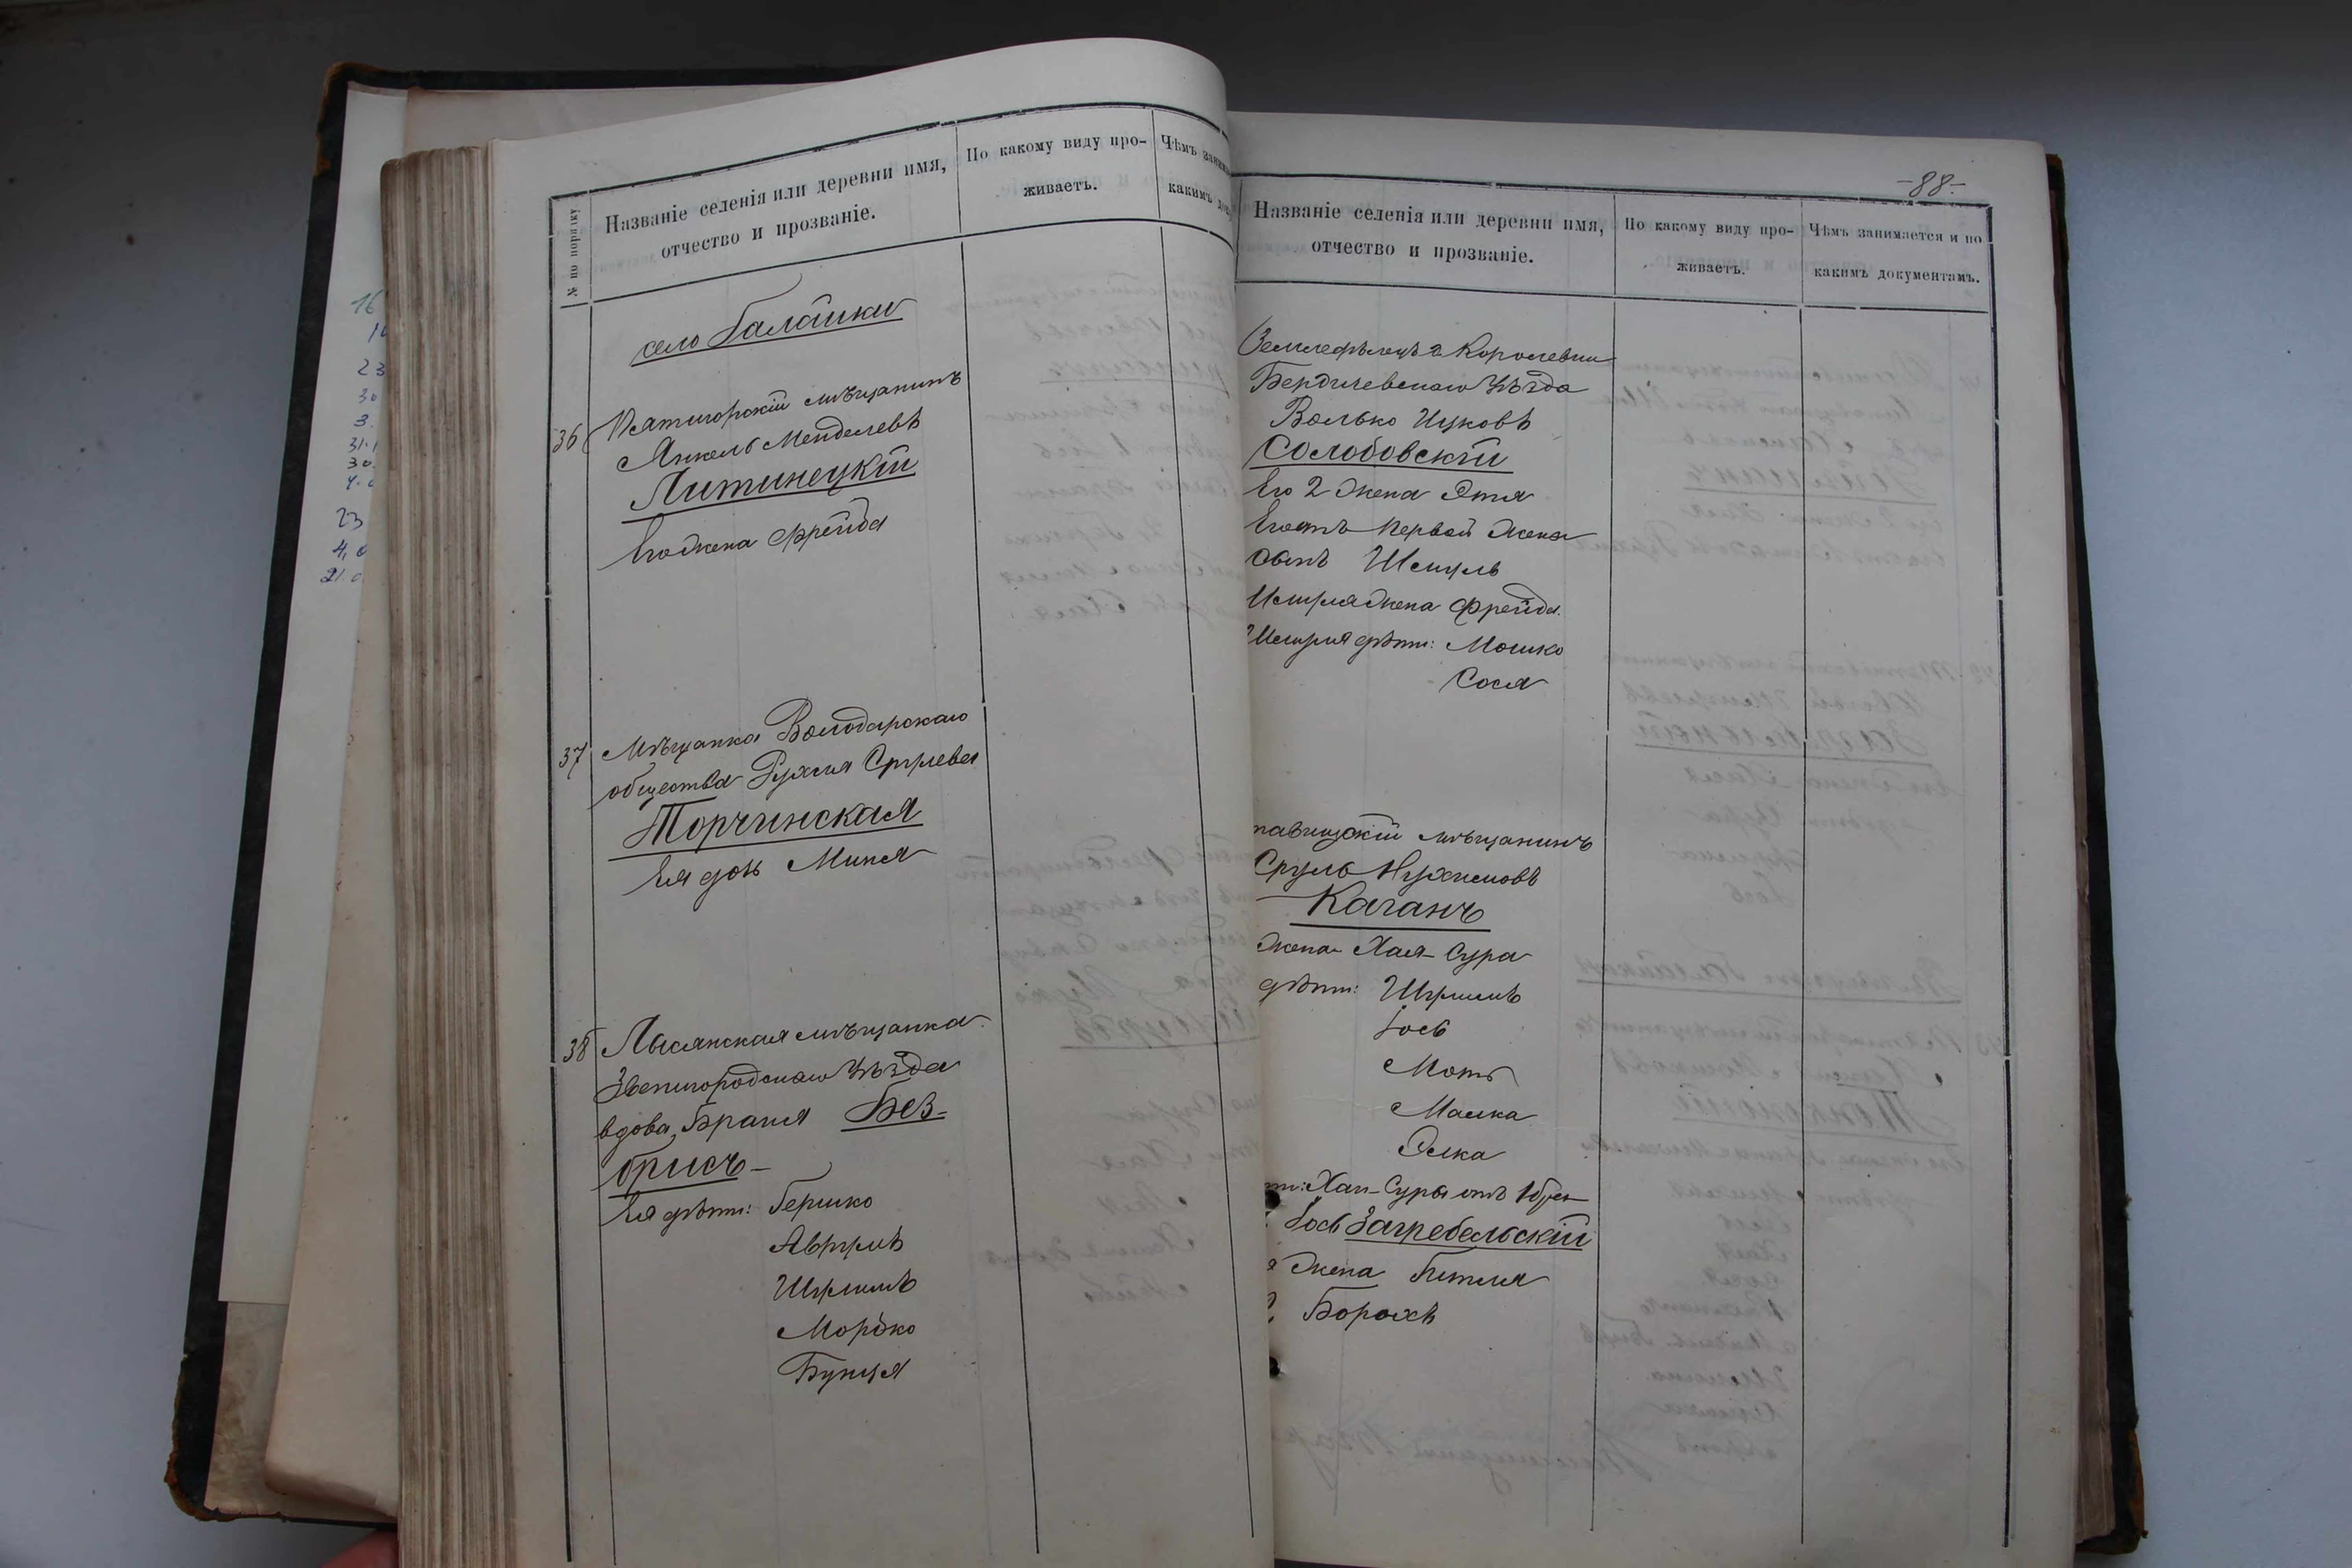 № по порядку
Названіе селенія или деревни имя,
отчество и прозваніе.
По какому виду про-
живаетъ.
Чѣмъ
какимъ
село Балашки
36 Пятигорскій мѣщанинъ
Янкель Менделевъ
Литинецкій
Его жена Фрейда
37 Мѣщанка Володарскаго
общества Рухля Срулева
Торчинская
Ея дочь Миня
38 Лысянская мѣщанка
Звенигородскаго уѣзда
вдова, Брана Без-
брисъ
Ея дѣти: Гершко
Аврумъ
Шулимъ
Мордко
Бунця
16
23
30
3.
31.1
30.
23
4.0
21.0
-88-
Названіе селенія или деревни имя,
отчество и прозваніе.
По какому виду про-
живаетъ.
Чѣмъ занимается и по
какимъ документамъ.
Земледѣлецъ Королевки
Бердичевскаго уѣзда
Волько Ицковъ
Солобовскій
Его 2 жена Этя
Его отъ первой жены
сынъ Шмуль
Шмуля жена Фрейда
Шмуля дѣти: Мошко
Сося
мѣщанинъ
Сруль Нухимовъ
Каганъ
жена Хая-Сура
дѣти: Шулимъ
Іось
Моть
Малка
Элка
Хаи-Суры отъ 1 бра-
Іось Загребельскій
жена Бейля
Борохъ